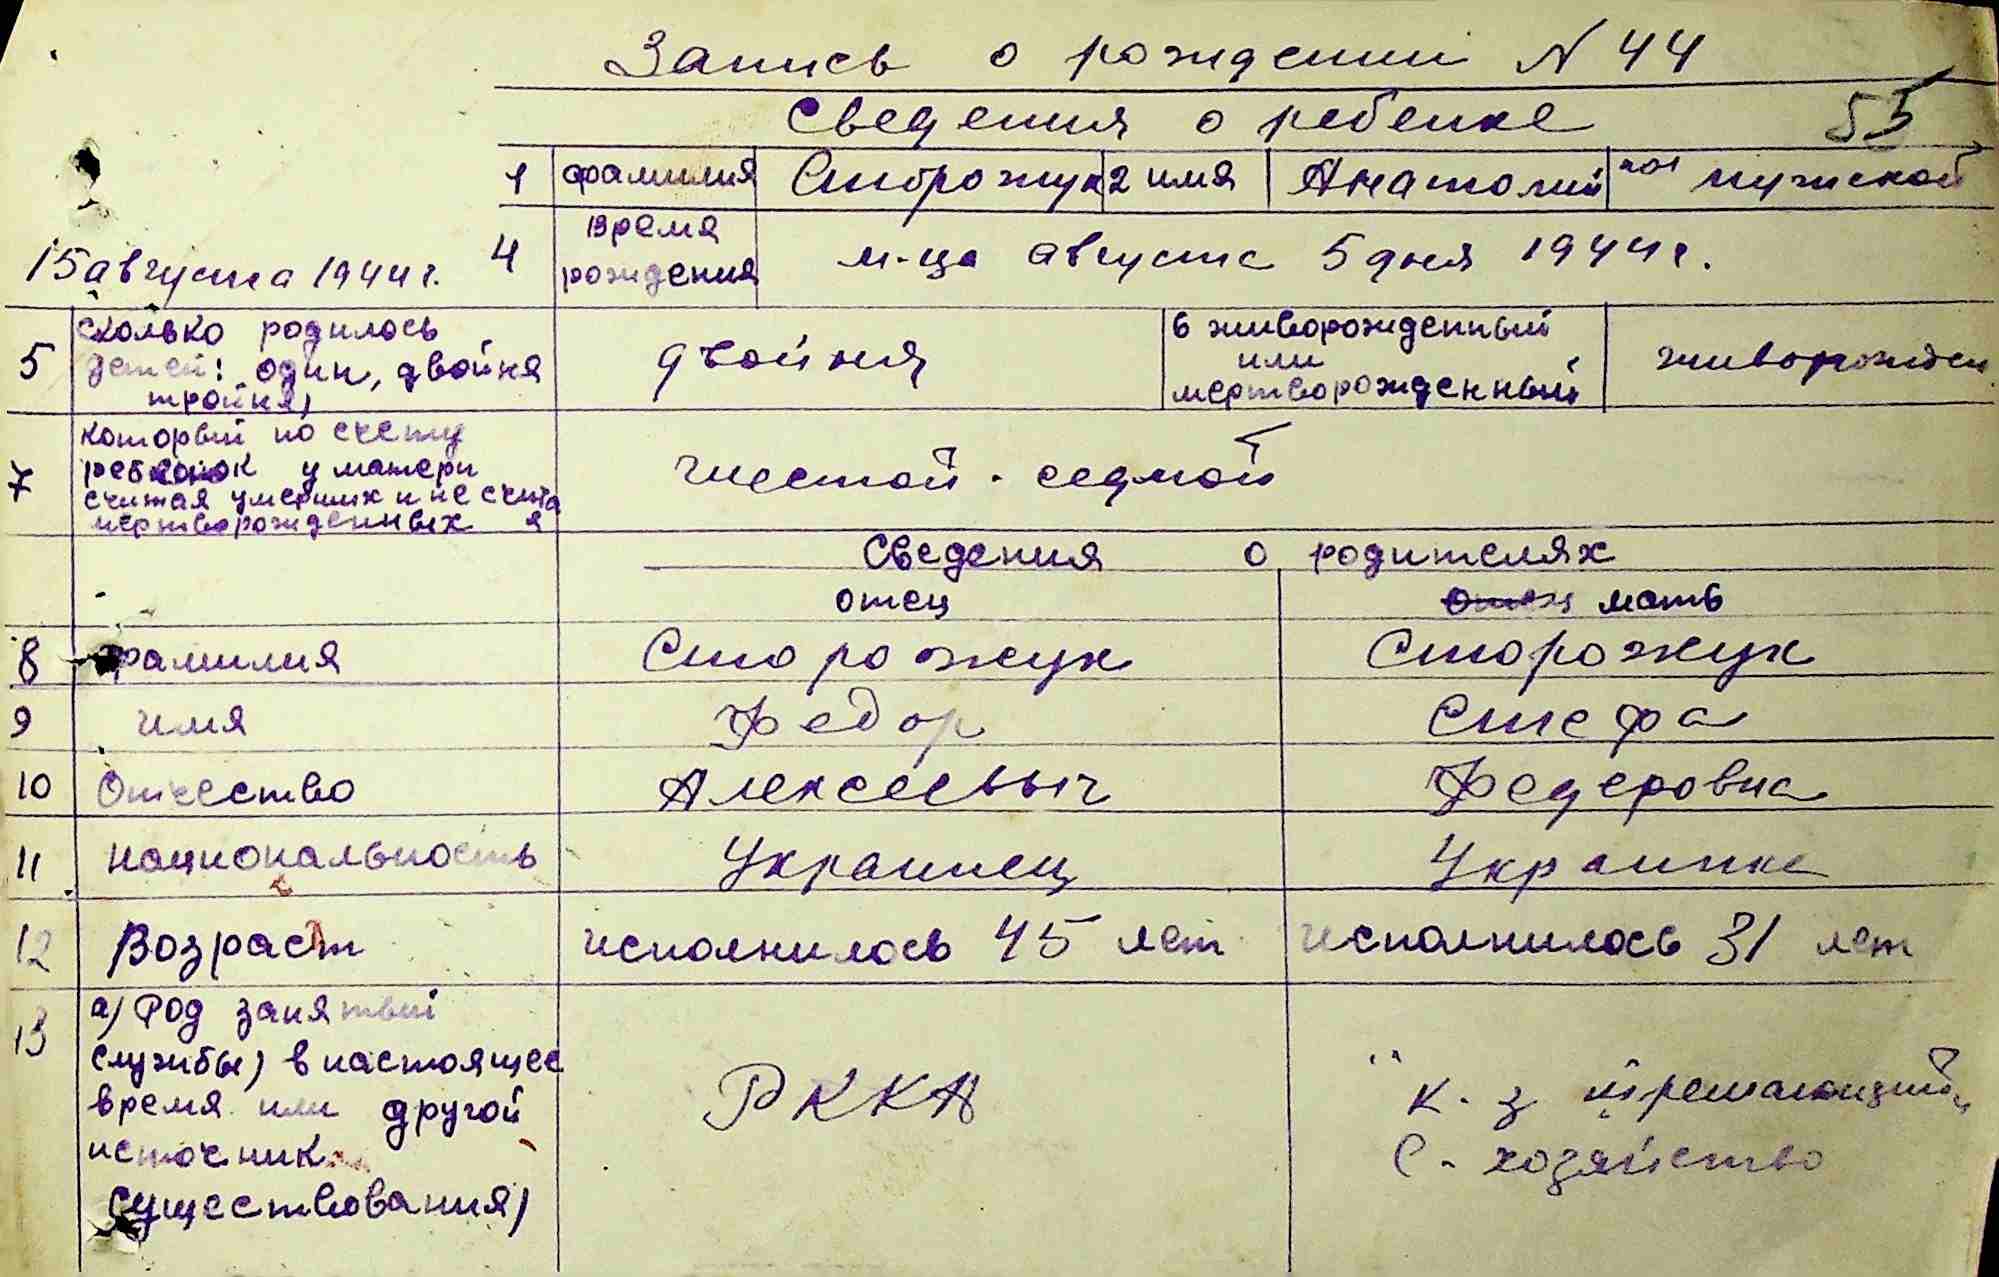 Запись о рождении N 44
Сведения о ребенке 55
1 фамилия Сторожук 2 имя Анатолий пол мужской
15 августа 1944 г. 4 Время рождения м-ца августа 5 дня 1944 г.
5 сколько родилось
детей: один, двойня
тройня)
двойня
6 живорожденный
или
мертворожденный
живорожден
7 который по счету
ребенок у матери
считая умерших и не считая
мертворожденных
шестой - седмой
Сведения о родителях
отец мать
8 фамилия Сторожук Сторожук
9 имя Федор Стефа
10 Отчество Алексеевыч Федеровна
11 национальность Украинец Украинка
12 Возраст исполнилось 45 лет исполнилось 31 лет
13 а) Род занятый
службы) в настоящее
время или другой
источник
существования)
РККА
к-з
с-хозяйство